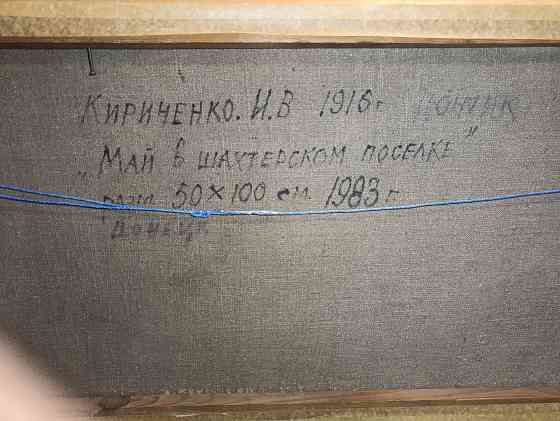 КИРИЧЕНКО. И.В 1916 г
"МАЙ В ШАХТЕРСКОМ ПОСЕЛКЕ"
50×100 см. 1983 г.
ДОНЕЦК